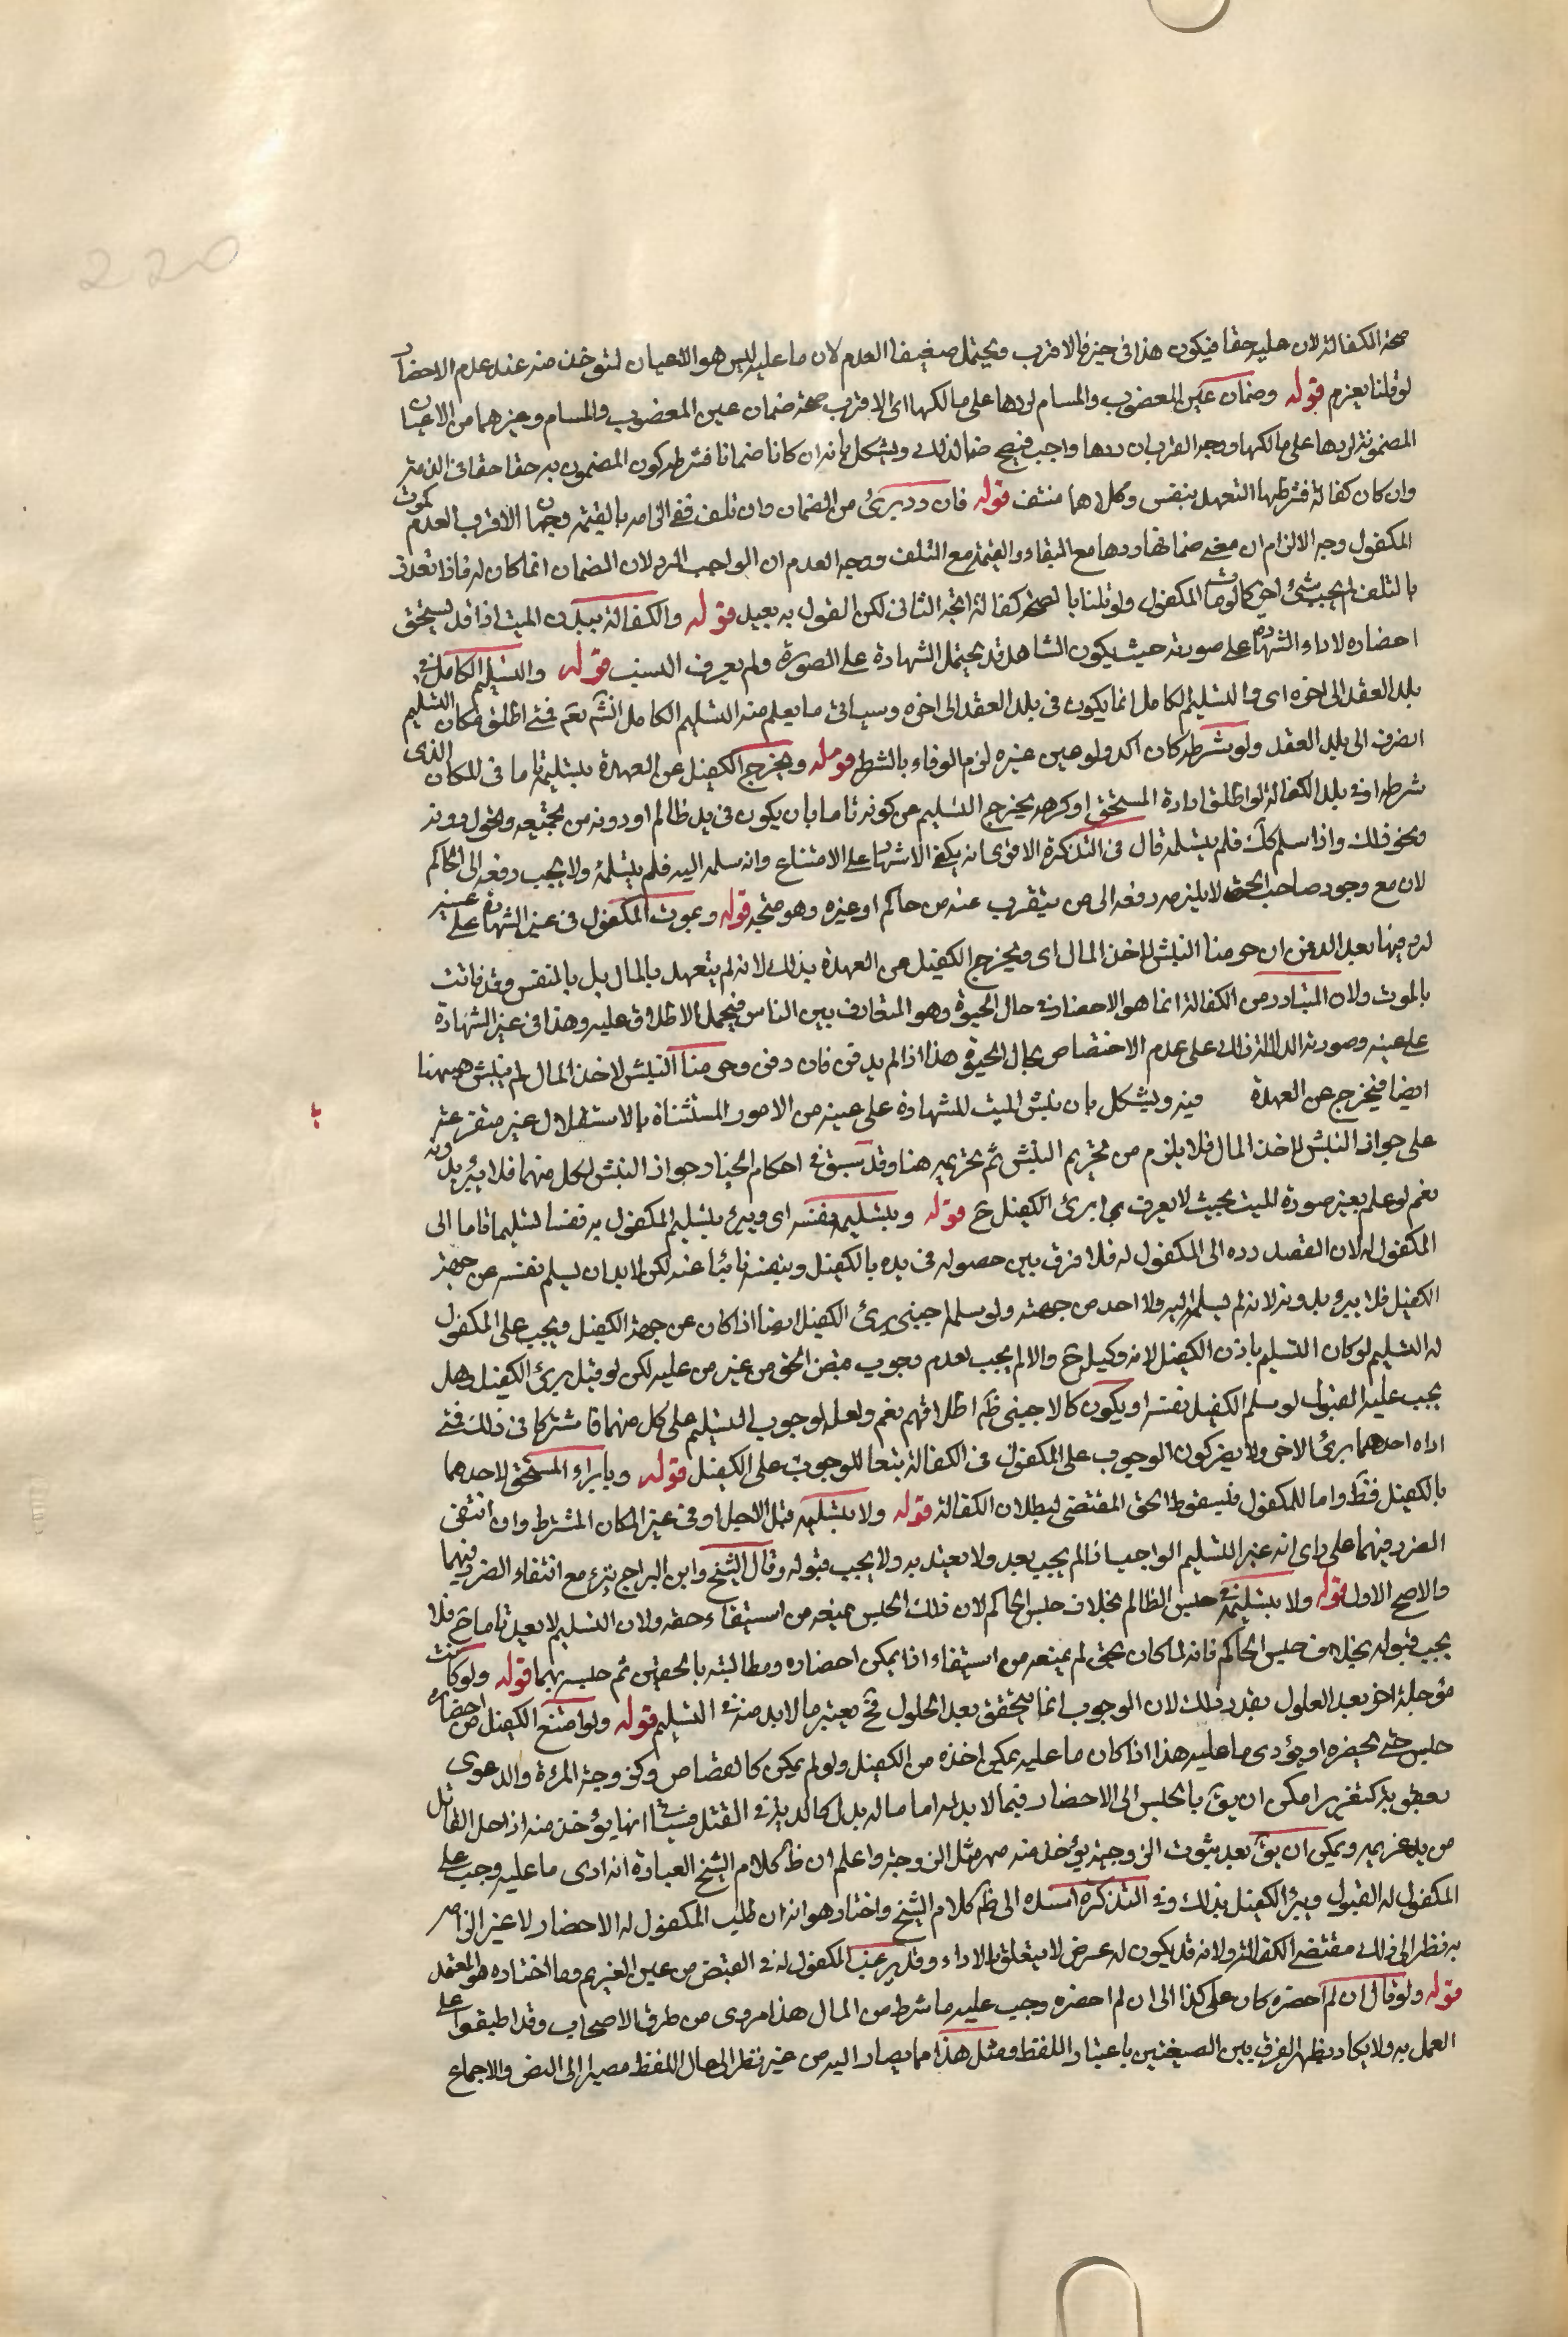 220
صحة الكفالة لان عليه حقا فيكون هذا في حيز فالاقرب ويحتمل ضعيفا العدم لان ما عليه ليس هو الاعيان لتؤخذ منه عند عدم الاحضار
لو قلنا يغرم قوله وضمان عين المغصوب والمسام لردها على مالكها اى الاقرب صحة ضمان عين المغصوب والمسام وغيرهما من الاعيان
المضمونة لردها على مالكها ووجه القرب ان ردها واجب فيصح ضمانه لذلك ويشكل بانه ان كانا ضمانا فشرطه كون المضمون به حقا حقا في الذمة
وان كان كفالة فشرطها التعهد بنفس وكلاهما منتف قوله فان رد برئ من الضمان وان تلف ففي الزامه بالقيمة وجهان الاقرب العدم كموت
المكفول وجه الالزام ان معنى ضمانها ردها مع البقاء والقيمة مع التلف ووجه العدم ان الواجب الرد لان الضمان انما كان له فاذا تعذر
بالتلف لم يجب شئ اخر كما لو مات المكفول ولو قلنا بالصحة كفالة اتجه الثاني لكن القول به بعيد قوله والكفالة ببدن الميت اذ قد يستحق
احضاره لاداء الشهادة على صورته حيث يكون الشاهد قد يحتمل الشهادة على الصورة ولم يعرف النسب قوله والتسليم الكامل في
بلد العقد الى اخره اى والتسليم الكامل انما يكون في بلد العقد الى اخره وسياتي ما يعلم منه التسليم الكامل انشم تعم فمتى اطلق مكان التسليم
انصرف الى بلد العقد ولو شرطه كان اكد ولو عين غيره لزم الوفاء بالشرط قوله ويخرج الكفيل عن العهدة بتسليمه تاما في المكان الذى
شرطه او في بلد الكفالة لو اطلق ارادة المستحق او كرهه يخرج التسليم عن كونه تاما بان يكون في يد ظالم او دونه من يمنعه ويحول دونه
ونحو ذلك واذا سلم كك فلم يتسلمه قال في التذكرة الاقوى انه يكفى الاشهاد على الامتناع وانه سلمه اليه فلم يتسلمه ولا يجب دفعه الى الحاكم
لان مع وجود صاحب الحق لا يلزمه دفعه الى من ينقرب عنه من حاكم او غيره وهو متجه قوله وبموت المكفول في غير الشهادة على عينه
لا فيها بعد الدفن ان حرمنا النبش لاخذ المال اى ويخرج الكفيل من العهدة بذلك لانه لم يتعهد بالمال بل بالنفس وقد فاتت
بالموت ولان المتبادر من الكفالة انما هو الاحضار في حال الحيوة وهو المتعارف بين الناس فيحمل الاطلاق عليه وهذا في غير الشهادة
على عينه وصورته الدالة ذلك على عدم الاختصاص بحال الحيوة هذا اذا لم يدفن فان دفن وحرمنا النبش لاخذ المال لم ينبش هيهنا
ايضا فيخرج عن العهدة فيه ويشكل بان نبش الميت للشهادة على عينه من الامور المستثناة بالاستقلال غير متفرعة
على جواز النبش لاخذ المال فلا يلزم من تحريم النبش ثم تحريمه هنا وقد سبق في احكام الجنائز جواز النبش لكل منهما فلا يبرئ بدونه
نعم لو علم بغير صورة الميت بحيث لا يعرف بها برئ الكفيل ح قوله وبتسليمه نفسه اى ويبرئ بتسليم المكفول به نفسا تسليما تاما الى
المكفول له لان القصد رده الى المكفول له فلا فرق بين حصوله في يده بالكفيل وبنفسه نائبا عنه لكن لا بد ان يسلم نفسه عن جهة
الكفيل فلا يبرؤ بدونه لانه لم يسلمه اليه ولا احد من جهته ولو سلمه اجنبي برئ الكفيل ايضا اذا كان عن جهة الكفيل ويجب على المكفول
له التسليم لو كان التسليم باذن الكفيل لانه وكيل ح والا لم يجب لعدم وجوب قبض الحق من غير من عليه لكن لو قبل برئ الكفيل وهل
يجب عليه القبول لو سلم الكفيل نفسه او يكون كالاجنبي ظم اطلاقهم نعم ولعله لوجوب التسليم على كل منهما فاشتركا في ذلك فمتى
اداه احدهما برئ الاخر ولا يضر كون الوجوب على المكفول في الكفالة تبعا للوجوب على الكفيل قوله وبابراء المستحق لاحدهما
بالكفيل فقط واما للمكفول فلسقوط الحق المقتضى لبطلان الكفالة قوله ولا بتسليمه قبل الاجل او في غير المكان المشترط وان انتفى
الضرر فيهما على راى انه غير التسليم الواجب اذ لم يجب بعد ولا يعتد به ولا يجب قبوله وقال الشيخ وابن البراج يبرئ مع انتفاء الضرر فيهما
والاصح الاول قوله ولا بتسليمه في حبس الظالم بخلاف حبس الحاكم لان ذلك الحبس يمنعه من استيفاء حقه ولان التسليم لا يعد تاما ح فلا
يجب قبوله بخلاف حبس الحاكم فانه لما كان بحق لم يمنعه من استيفاء اذ يمكن احضاره ومطالبته بالحقين ثم حبسه بهما قوله ولو كانت
مؤجلة اخر بعد الحلول بقدر ذلك لان الوجوب انما يتحقق بعد الحلول فح يعتبر ما لا بد منه في التسليم قوله ولو امتنع الكفيل من احضاره
حبس حتى يحضره او يؤدى ما عليه هذا اذا كان ما عليه يمكن اخذه من الكفيل ولو لم يمكن كالقصاص وكزوجية المرءة والدعوى
بعقوبة كتقرير امكن ان يق بالحبس الى الاحضار فيما لا بد له اما ما له بدل كالدية في القتل فسيشا انها يؤخذ منه اذا خلى القاتل
من يد غريمه ويمكن ان يق بعد ثبوت الزوجية يؤخذ منه مهر مثل الزوجة واعلم ان ظ كلام الشيخ العبادة انه ادى ما عليه وجب على
المكفول له القبول ويبرؤ الكفيل بذلك وفي التذكرة اسنده الى ظم كلام الشيخ واختار هو انه ان طلب المكفول له الاحضار لا غير الزامه
به نظرا الى ذلك مقتضى الكفالة ولانه قد يكون له غرض لا يتعلق بالاداء وقد يرغب المكفول له في القبض من عين الغريم وما اختاره هو المعتمد
قوله ولو قال ان لم احضره كان على كذا الى ان لم احضره وجب عليه ما شرط من المال هذا مروى من طرق الاصحاب وقد اطبقوا على
العمل به ولا يكاد يظهر الفرق بين الصيغتين باعتبار اللفظ ومثل هذا مما يصار اليه من غير نظر الى حال اللفظ مصيرا الى النص والاجماع